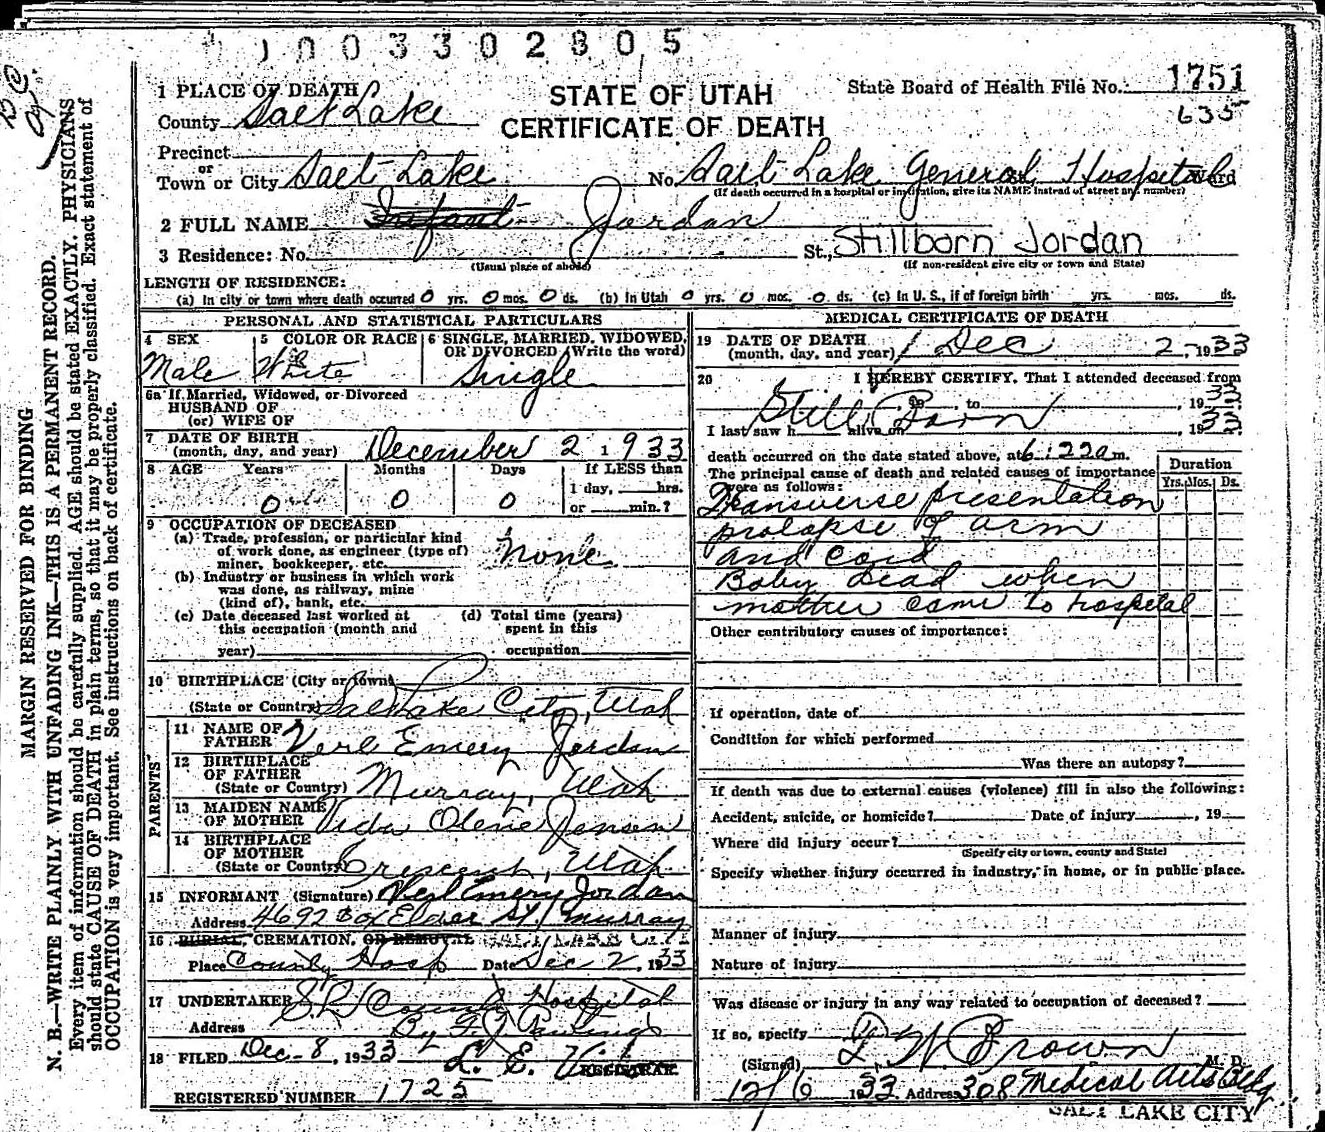 1003302805
1 PLACE OF DEATH
STATE OF UTAH
CERTIFICATE OF DEATH
State Board of Health File No. 1751
635
County Salt Lake
Precinct
or
Town or City Salt Lake No. Salt Lake General Hospital Ward
(If death occurred in a hospital or institution, give its NAME instead of street and number)
2 FULL NAME Infant Jordan
3 Residence: No. St., Stillborn Jordan
(Usual place of abode) (If non-resident give city or town and State)
LENGTH OF RESIDENCE:
(a) In city or town where death occurred 0 yrs. 0 mos. 0 ds. (b) In Utah 0 yrs. 0 mos. 0 ds. (c) In U. S., if of foreign birth yrs. mos. ds.
PERSONAL AND STATISTICAL PARTICULARS
4 SEX
Male
5 COLOR OR RACE
White
6 SINGLE, MARRIED, WIDOWED, OR DIVORCED (Write the word)
Single
6a If Married, Widowed, or Divorced
HUSBAND OF
(or) WIFE OF
7 DATE OF BIRTH
(month, day, and year) December 2 1933
8 AGE Years Months Days If LESS than
1 day, hrs.
0 0 0 or min.?
9 OCCUPATION OF DECEASED
(a) Trade, profession, or particular kind
of work done, as engineer (type of)
miner, bookkeeper, etc. None
(b) Industry or business in which work
was done, as railway, mine
(kind of), bank, etc.
(c) Date deceased last worked at
this occupation (month and
year)
(d) Total time (years)
spent in this
occupation
10 BIRTHPLACE (City or town)
(State or Country) Salt Lake City, Utah
PARENTS
11 NAME OF
FATHER Verl Emery Jordan
12 BIRTHPLACE
OF FATHER
(State or Country) Murray, Utah
13 MAIDEN NAME
OF MOTHER Vida Olene Jensen
14 BIRTHPLACE
OF MOTHER
(State or Country) Crescent, Utah
15 INFORMANT (Signature) Verl Emery Jordan
Address 4692 So St. Murray
16 BURIAL, CREMATION, OR REMOVAL SALT LAKE CITY
Place County Hosp Date Dec 2, 1933
17 UNDERTAKER S. L. County Hospital
Address By
18 FILED Dec-8, 1933 L. E.
REGISTRAR
REGISTERED NUMBER 1725
MEDICAL CERTIFICATE OF DEATH
19 DATE OF DEATH
(month, day, and year) Dec 2, 1933
20 I HEREBY CERTIFY, That I attended deceased from
to , 1933
Still Born
I last saw h alive on , 1933
death occurred on the date stated above, at 6:22a m.
The principal cause of death and related causes of importance
were as follows:
Duration
Yrs. Mos. Ds.
Transverse presentation
prolapse of arm
and cord
Baby dead when
mother came to hospital
Other contributory causes of importance:
If operation, date of
Condition for which performed
Was there an autopsy?
If death was due to external causes (violence) fill in also the following:
Accident, suicide, or homicide? Date of injury , 19
Where did injury occur?
(Specify city or town, county and State)
Specify whether injury occurred in industry, in home, or in public place.
Manner of injury
Nature of injury
Was disease or injury in any way related to occupation of deceased?
If so, specify
(Signed) W Brown M. D.
12/6 1933 Address 308 Medical Arts Bldg
SALT LAKE CITY
MARGIN RESERVED FOR BINDING
N. B.—WRITE PLAINLY WITH UNFADING INK—THIS IS A PERMANENT RECORD.
Every item of information should be carefully supplied. AGE should be stated EXACTLY. PHYSICIANS
should state CAUSE OF DEATH in plain terms, so that it may be properly classified. Exact statement of
OCCUPATION is very important. See instructions on back of certificate.